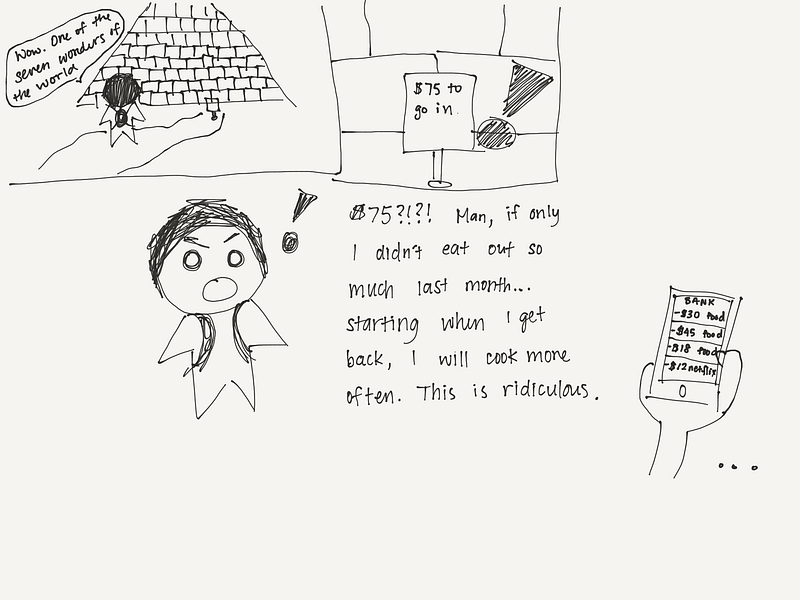 Wow. One of the
seven wonders of
the world
$75 to
go in.
$75?!?! Man, if only
I didn't eat out so
much last month...
starting when I get
back, I will cook more
often. This is ridiculous.
BANK
-$30 food
-$45 food
-$18 food
-$12 netflix
...